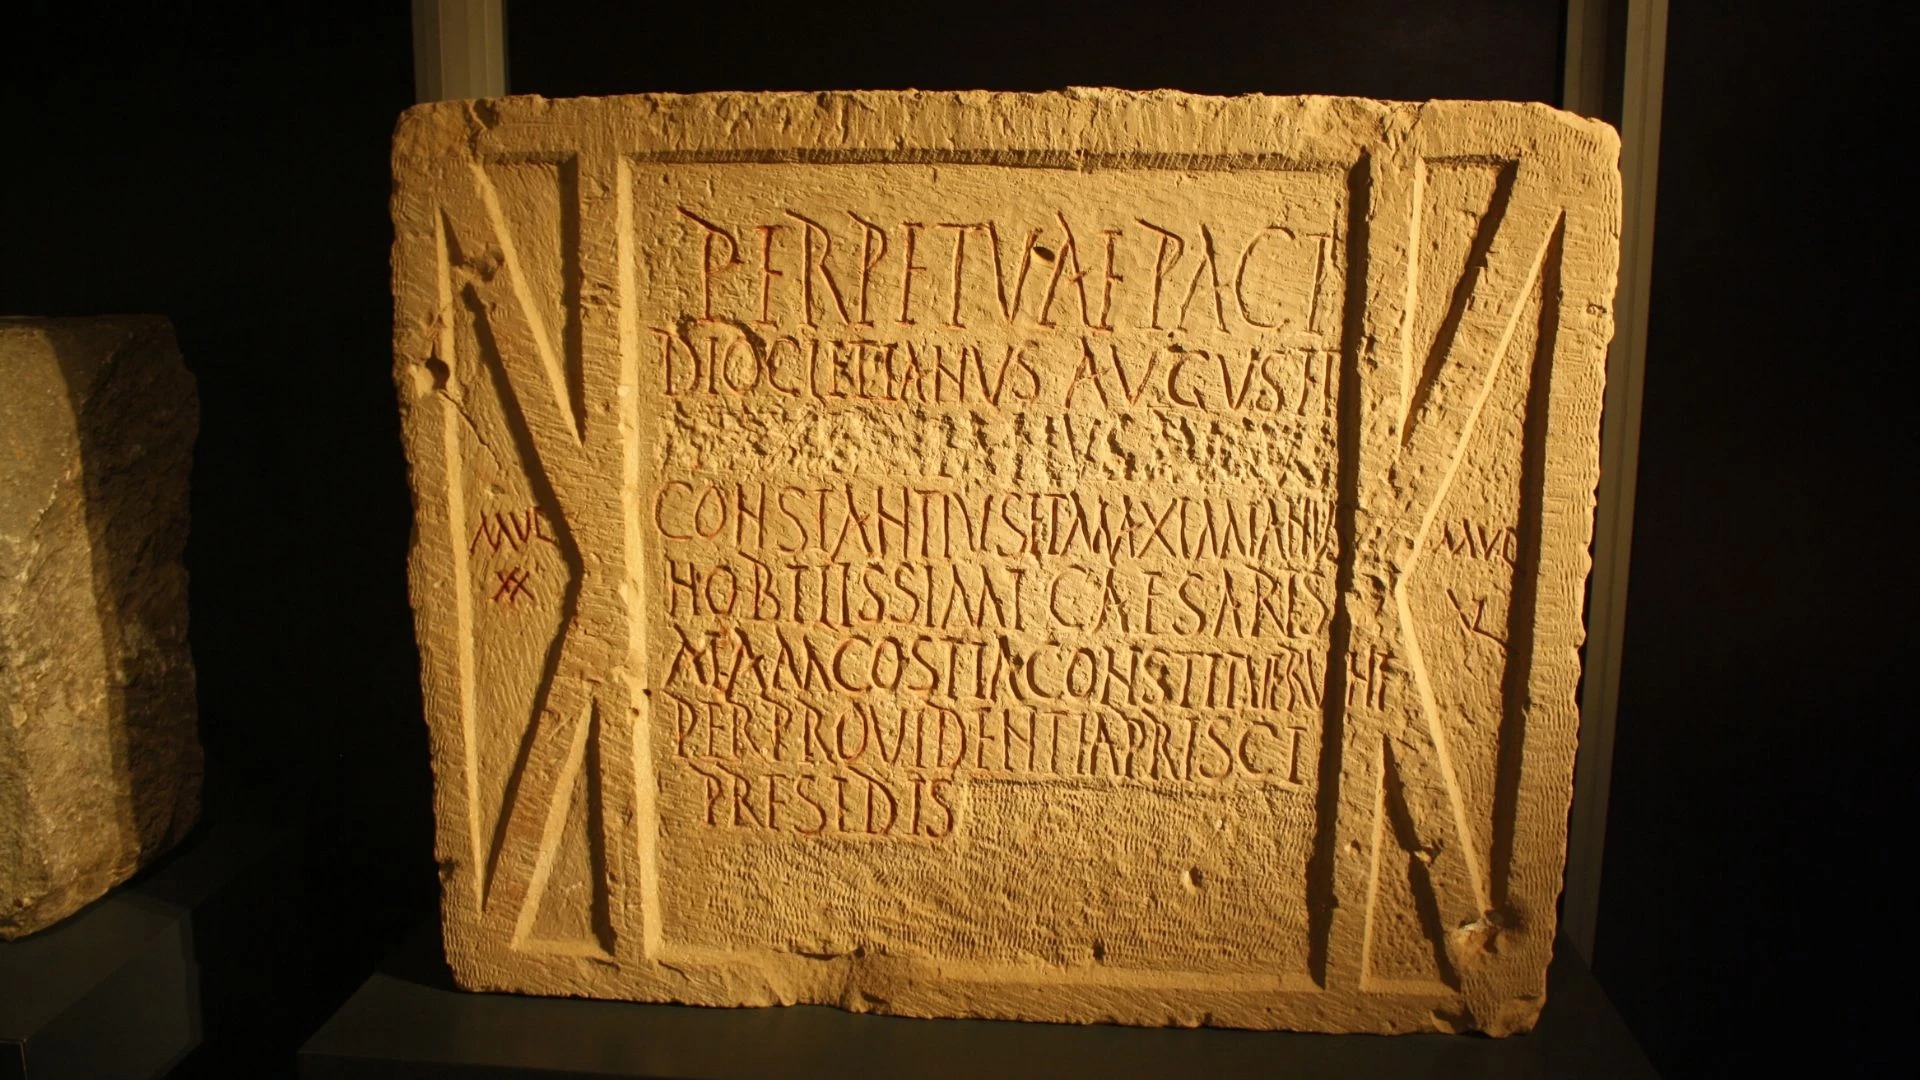 PERPETVAE PACI
DIOCLETIANVS AVGVSTI
CONSTANTIVS ET MAXIMIANV
NOBILISSIMI CAESARES
MEAM COSTIA CONSTITVERVNT
PER PROVIDENTIA PRISCI
PRESEDIS
MVL
XX
MVL